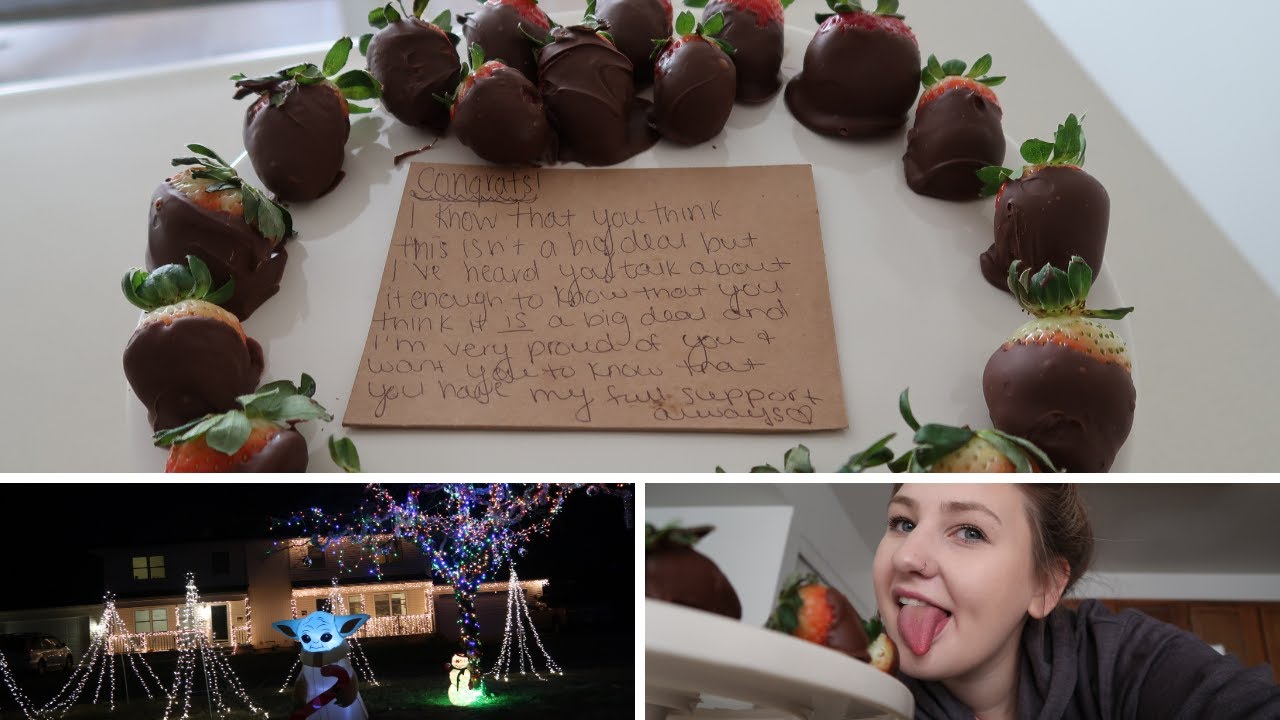 Congrats!
I know that you think
this isn't a big deal but
I've heard you talk about
it enough to know that you
think it is a big deal and
I'm very proud of you &
want you to know that
you have my full support
always♡